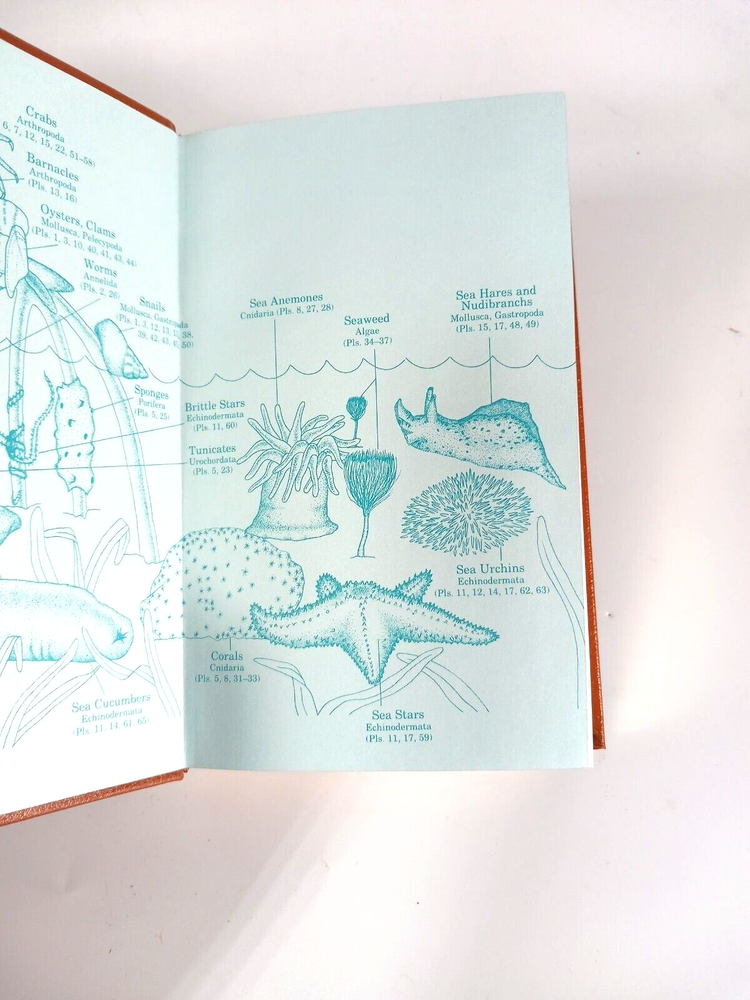 Crabs
Arthropoda
6, 7, 12, 15, 22, 51–58)
Barnacles
Arthropoda
(Pls. 13, 16)
Oysters, Clams
Mollusca, Pelecypoda
(Pls. 1, 3, 10, 40, 41, 43, 44)
Worms
Annelida
(Pls. 2, 26)
Snails
Mollusca, Gastropoda
(Pls. 1, 3, 12, 13, 38,
39, 42, 43, 50)
Sponges
Porifera
(Pls. 5, 25)
Brittle Stars
Echinodermata
(Pls. 11, 60)
Tunicates
Urochordata
(Pls. 5, 23)
Sea Cucumbers
Echinodermata
(Pls. 11, 14, 61, 65)
Sea Anemones
Cnidaria (Pls. 8, 27, 28)
Seaweed
Algae
(Pls. 34–37)
Sea Hares and
Nudibranchs
Mollusca, Gastropoda
(Pls. 15, 17, 48, 49)
Sea Urchins
Echinodermata
(Pls. 11, 12, 14, 17, 62, 63)
Corals
Cnidaria
(Pls. 5, 8, 31–33)
Sea Stars
Echinodermata
(Pls. 11, 17, 59)